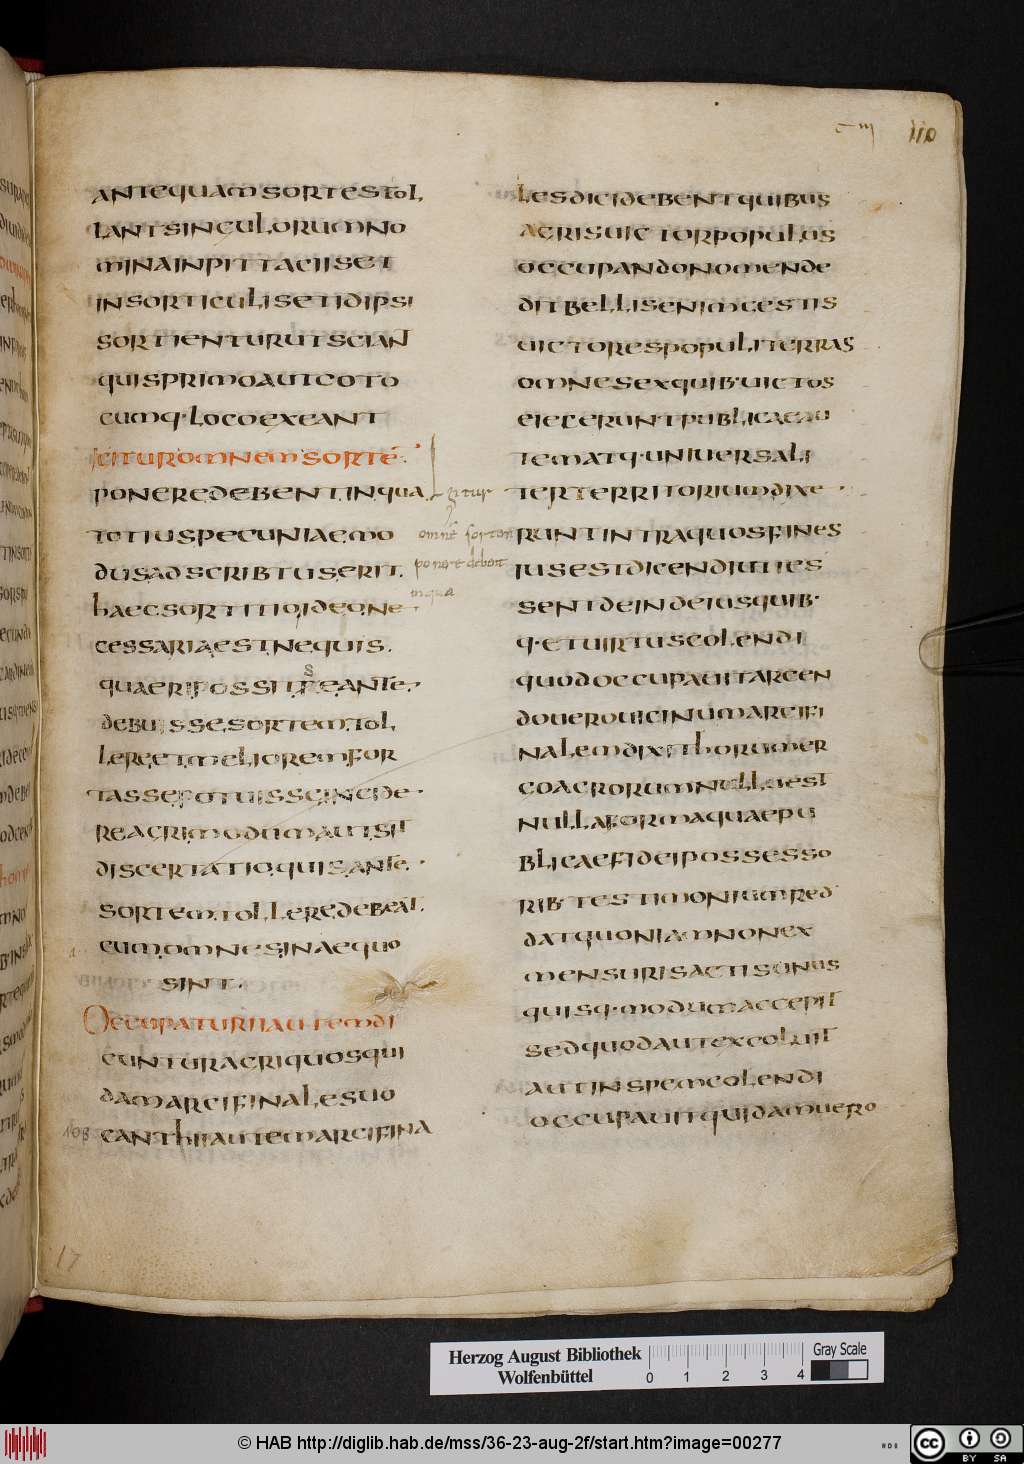 c III
110
ANTEQUAMSORTESTOL
LANTSINGULORUMNO
MINAINPITTACIISET
INSORTICULISETIDIPSI
SORTIENTURUTSCIANT
QUISPRIMOAUTCOTO
CUMQ·LOCOEXEANT
ICITUROMNEMSORTĒ·
PONEREDEBENT,INQUA
TOTIUSPECUNIAEMO
DUSADSCRIBTUSERIT.
HAECSORTITIOIDEONE
CESSARIAESTNEQUIS.
QUAERIPOSSITSEANTE·
DEBUISSESORTEMTOL
LERE,ETMELIOREMFOR
TASSEPOTUISSEINCIDE·
REAGRIMODUMAUTSIT
DISCERTATIOQUISANTE·
SORTEMTOLLEREDEBEAT.
CUMOMNESINAEQUO
SINT.
OCCUPATURIIAUTEMDI
CUNTURAGRIQUOSQUI
DAMARCIFINALESUO
CANTHIIAUTEMARCIFINA
gitur
omnē sortem
ponere debent
in qua
LESDICIDEBENTQUIBUS
AGRISUICTORPOPULUS
OCCUPANDONOMENDE
DITBELLISENIMGESTIS
UICTORESPOPULITERRAS
OMNESEXQUIB·UICTOS
EIECERUNTPUBLICAEAU
TEMATQ·UNIUERSALI
TERTERRITORIUMDIXE·
RUNTINTRAQUOSFINES
IUSESTDICENDIUTIES
SENTDEINDEIUSQUIB·
Q·ETUIRTUSCOLENDI
QUODOCCUPAUITARCEN
DOUEROUICINUMARCIFI
NALEMDIXITHORUMER
GOAGRORUMNULLUEST
NULLAFORMAQUAEPU
BLICAEFIDEIPOSSESSO
RIB·TESTIMONIUMRED
DATQUONIAMNONEX
MENSURISACTISUNUS
QUISQ·MODUMACCEPIT
SEDQUODAUTEXCOLUIT
AUTINSPEMCOLENDI
OCCUPAUITQUIDAMUERO
108
17
Herzog August Bibliothek
Wolfenbüttel
0 1 2 3 4
Gray Scale
© HAB http://diglib.hab.de/mss/36-23-aug-2f/start.htm?image=00277
cc BY SA